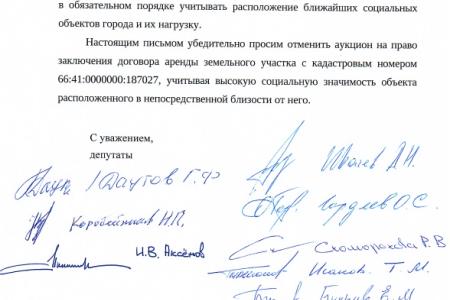 в обязательном порядке учитывать расположение ближайших социальных
объектов города и их нагрузку.
Настоящим письмом убедительно просим отменить аукцион на право
заключения договора аренды земельного участка с кадастровым номером
66:41:0000000:187027, учитывая высокую социальную значимость объекта
расположенного в непосредственной близости от него.
С уважением,
депутаты
Даутов Г.Ф
Коробейников Н.П.
И.В. Аксёнов
Ивачев А.Н.
О.С.
Скоморохова Р.В
Т.М.
Е.М